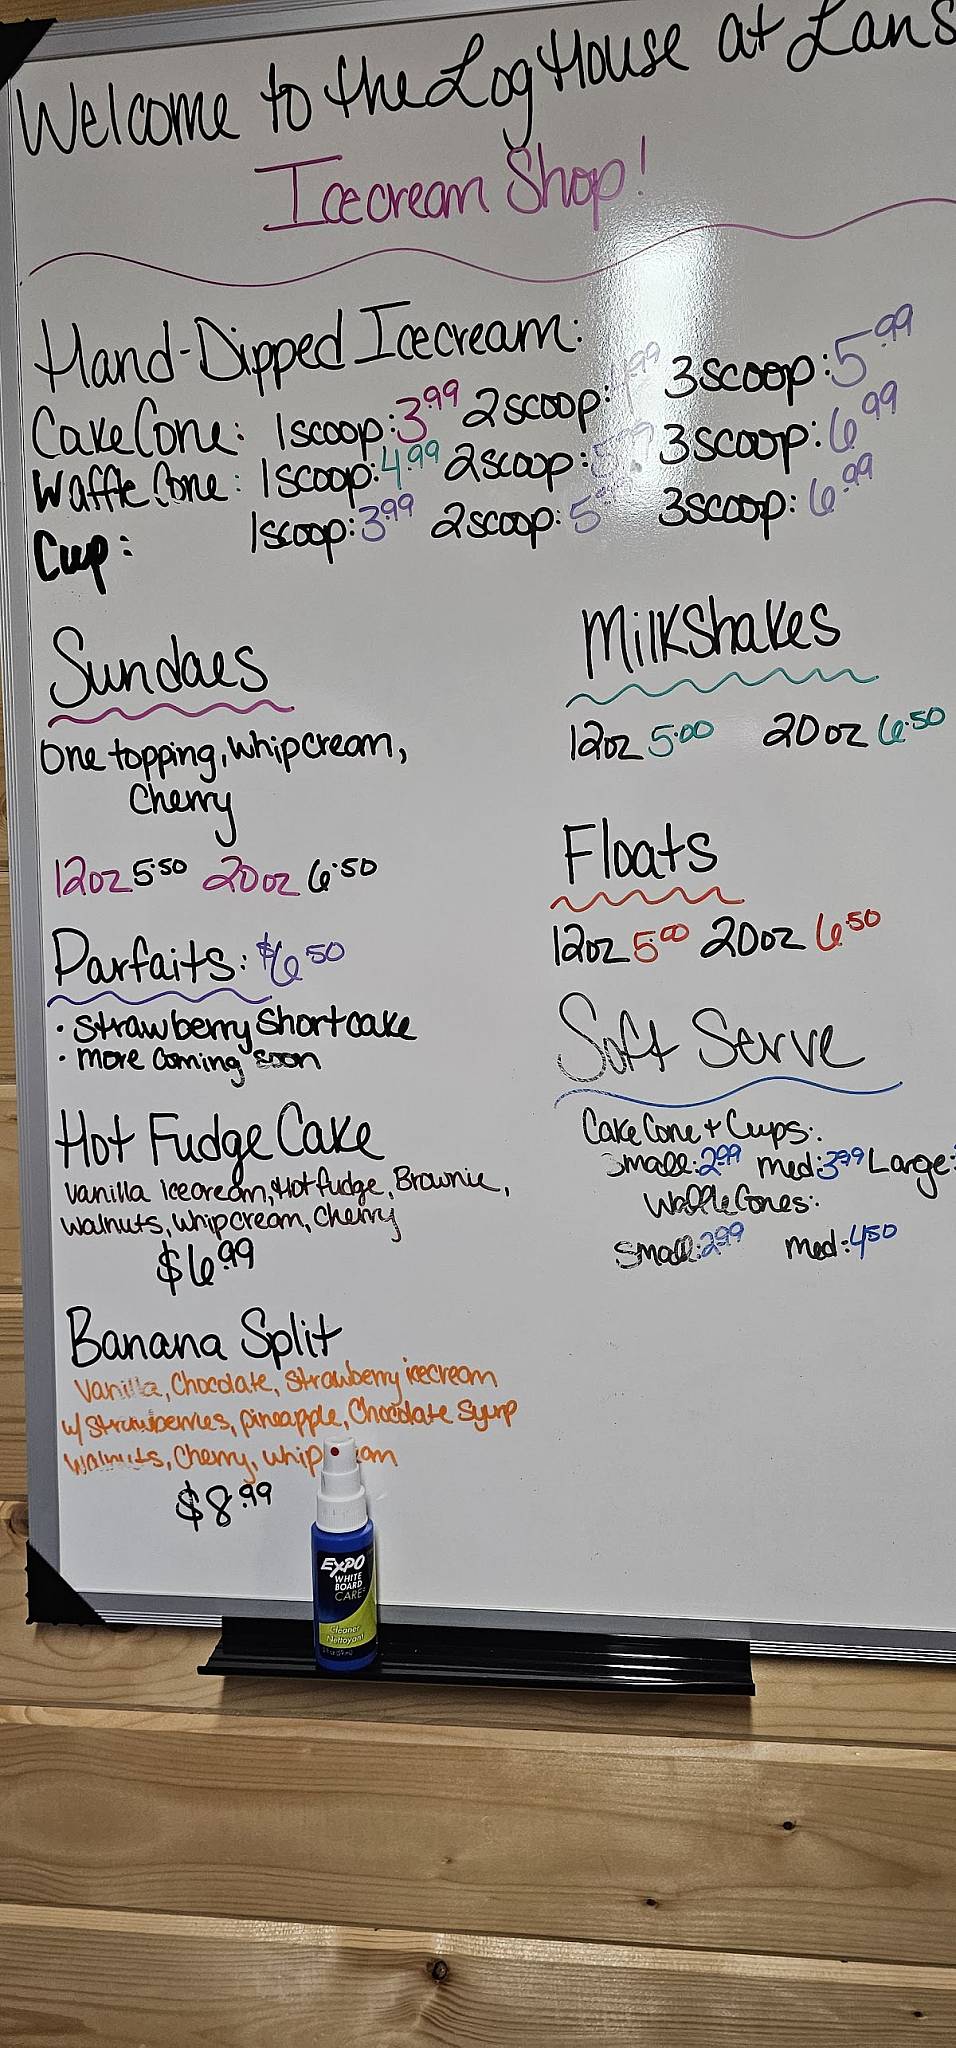 Welcome to the Log House at Lans
Icecream Shop!
Hand-Dipped Icecream:
Cake Cone: 1scoop: 3.99 2scoop: .99 3scoop: 5.99
Waffle Cone: 1scoop: 4.99 2scoop: 5.99 3scoop: 6.99
Cup: 1scoop: 3.99 2scoop: 5 3scoop: 6.99
Sundaes
One topping, whipcream,
Cherry
12oz 5.50 20oz 6.50
Parfaits: $6.50
• Strawberry Shortcake
• more coming soon
Hot Fudge Cake
Vanilla icecream, Hot fudge, Brownie,
Walnuts, Whipcream, Cherry
$6.99
Banana Split
Vanilla, Chocolate, Strawberry icecream
w/ Strawberries, pineapple, Chocolate Syrup
Walnuts, Cherry, whip am
$8.99
Milkshakes
12oz 5.00 20oz 6.50
Floats
12oz 5.00 20oz 6.50
Soft Serve
Cake Cone + Cups:
Small: 2.99 med: 3.99 Large:
Waffle Cones:
Small: 2.99 med: 4.50
EXPO
WHITE
BOARD
CARE
Cleaner
Nettoyant